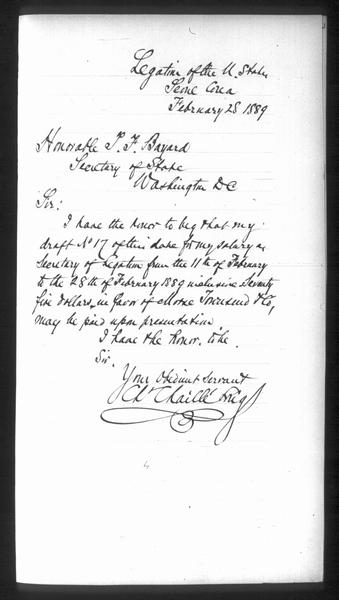 Legation of the U. States
Seoul Corea
February 28 1889
Honorable T. F. Bayard
Secretary of State
Washington DC
Sir:
I have the honor to beg that my
draft No 17 of this date for my salary as
Secretary of Legation from the 11th of February
to the 28th of February 1889 inclusive Seventy
five dollars, in favor of Morse Townsend & Co,
may be paid upon presentation.
I have the honor to be
Sir.
Your Obedient Servant
Ch. Chaillé Long